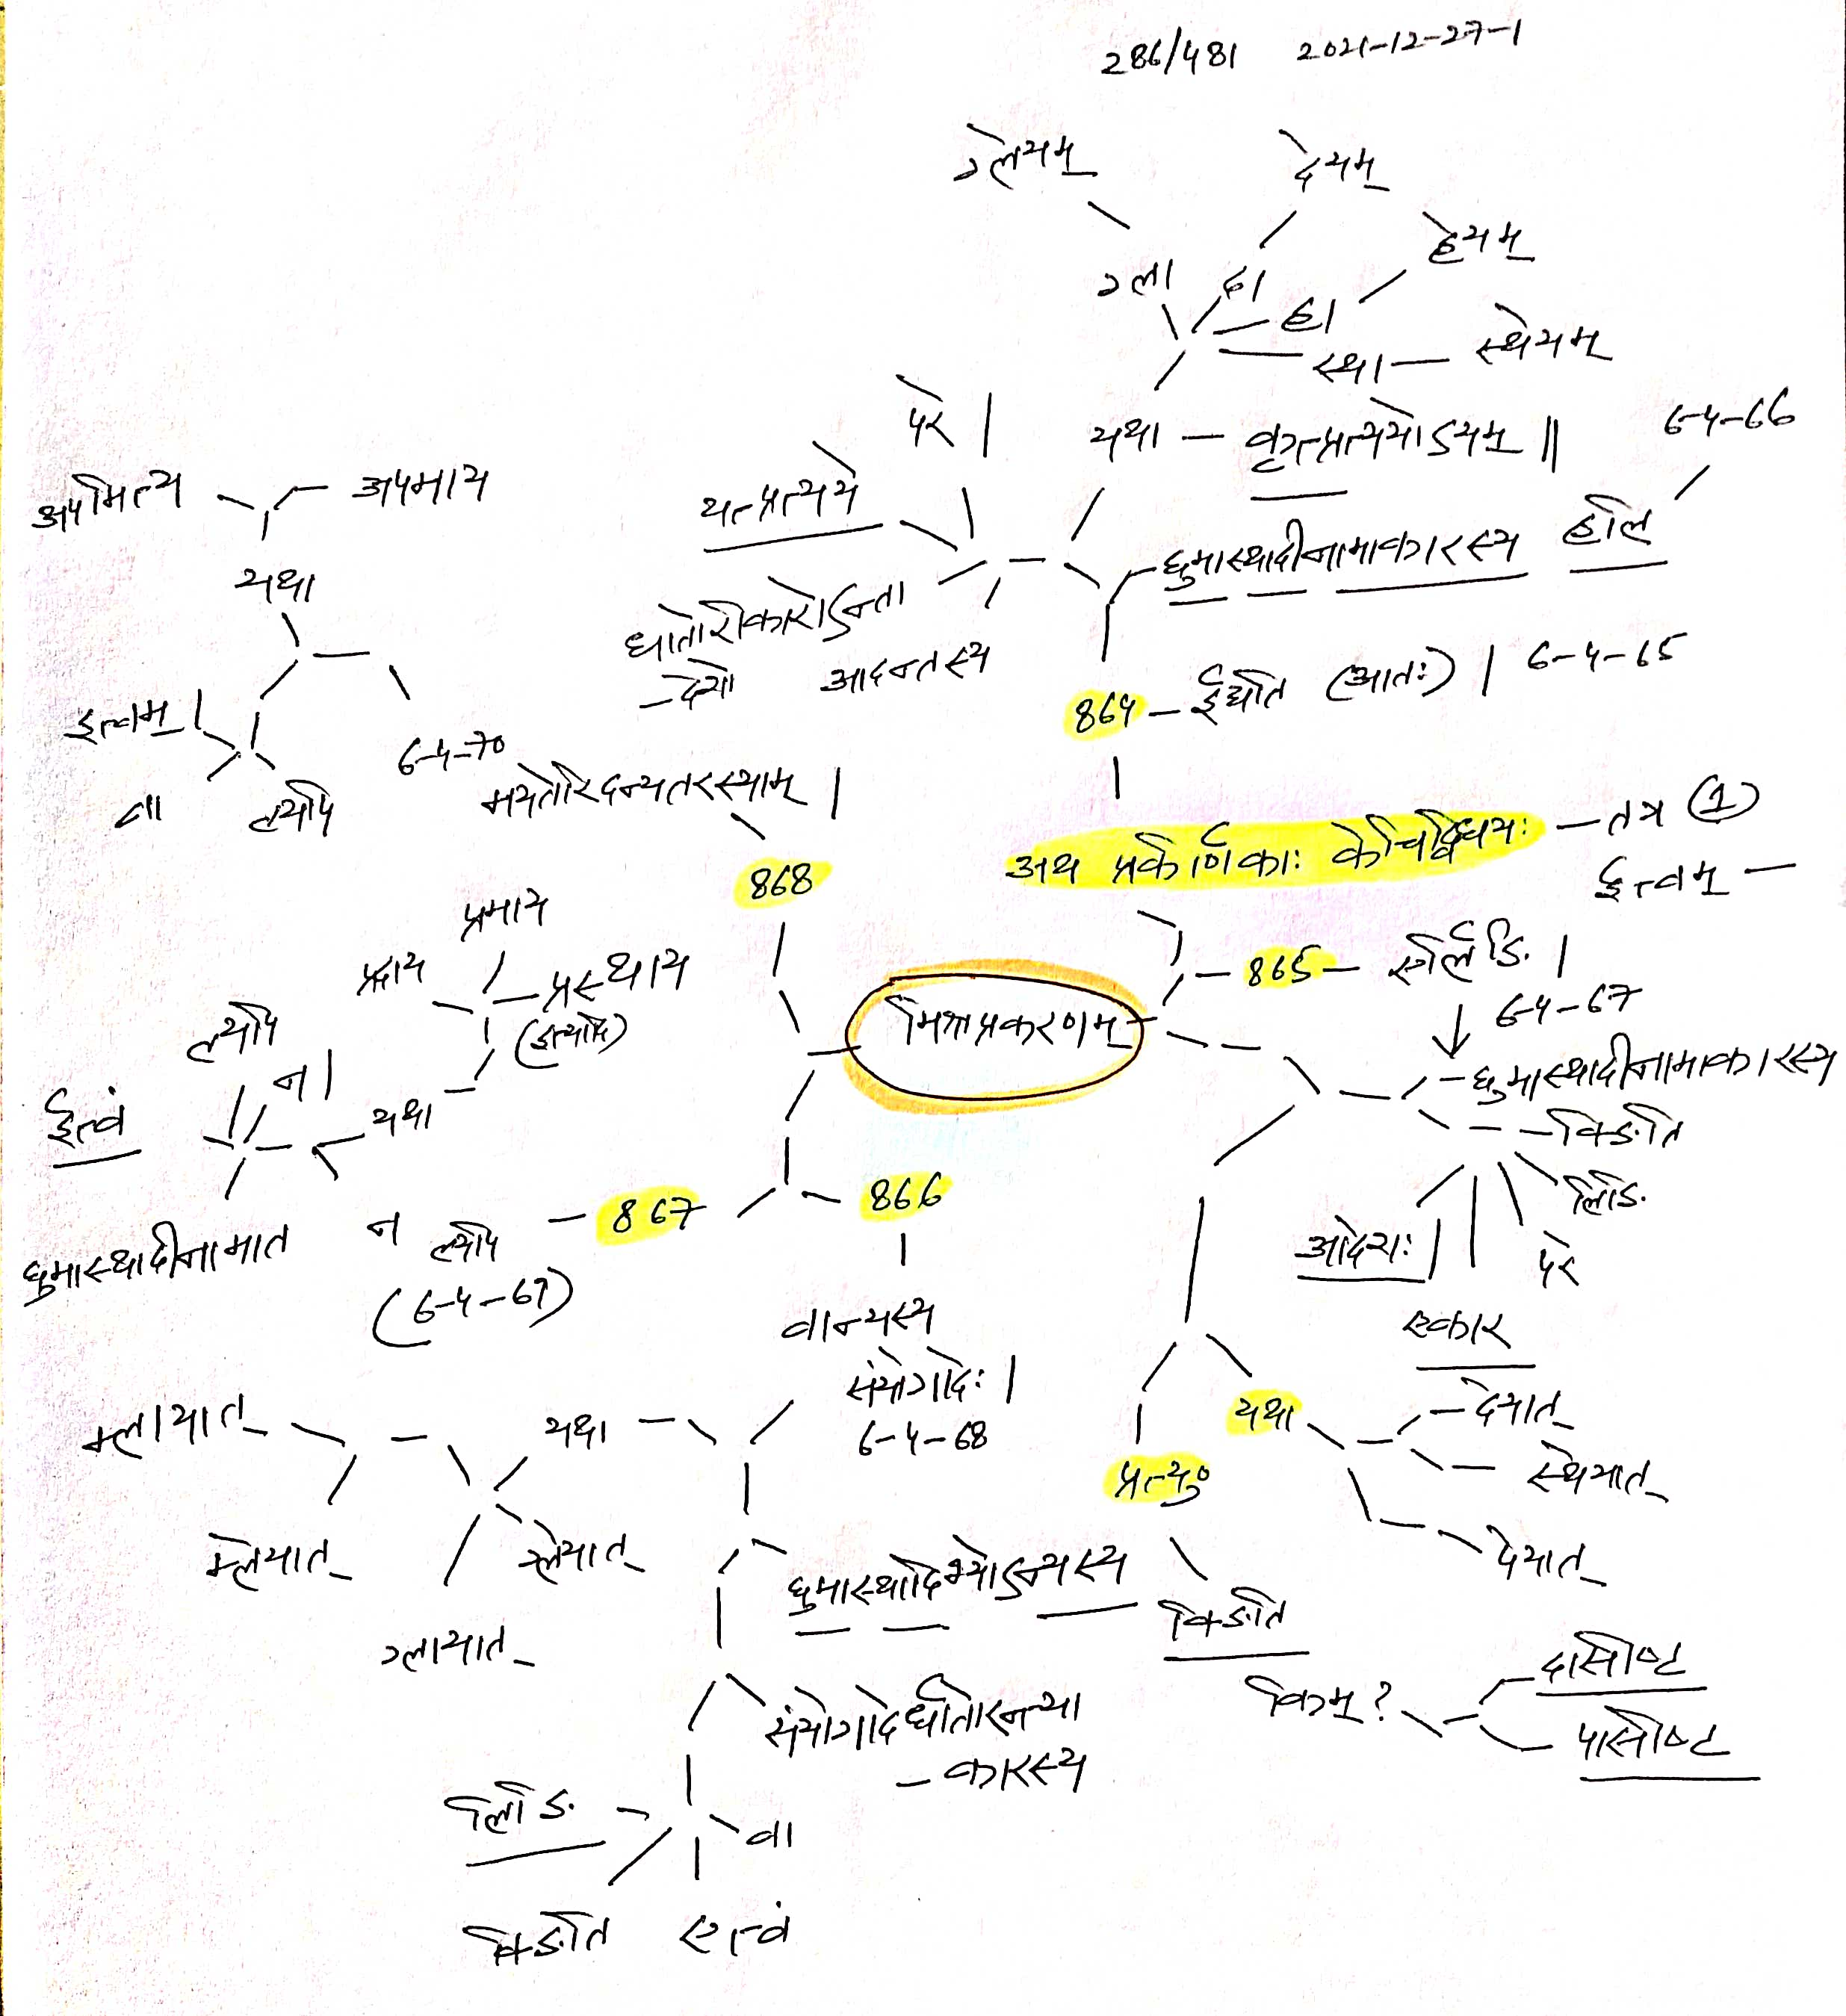 286/481 2021-12-27-1
ग्लेयम्
देयम्
हेयम्
ग्ला
दा
हा
स्था
स्थेयम्
यथा
कृत्प्रत्ययोऽयम् ||
6-4-66
परे |
यत्प्रत्यये
घुमास्थादीनामाकारस्य
हलि
धातोरीकारोऽन्ता
-देशो
आदन्तस्य
864 - ईद्यति (आतः) | 6-4-65
अथ प्रकीर्णिकाः केचिद्विधयः - तत्र (1)
ईत्वम् -
अपमित्य
अपमाय
यथा
इत्वम् |
वा
ल्यपि
6-4-70
मयतेरिदन्यतरस्याम् |
868
मिश्रप्रकरणम्
865 - एर्लिङि |
6-4-67
घुमास्थादीनामाकारस्य
क्ङिति
लिङि
परे
आदेशः |
एकार
यथा
देयात्
स्थेयात्
पेयात्
प्रत्यु०
क्ङिति
किम् ?
दासीष्ट
पासीष्ट
प्रमाय
प्रदाय
प्रस्थाय
(इत्यादि)
ल्यपि
न |
ईत्वं
यथा
घुमास्थादीनामात
न ल्यपि
(6-4-69)
867
866
वान्यस्य
संयोगादेः |
6-4-68
यथा
म्लायात्
म्लेयात्
ग्लेयात्
ग्लायात्
घुमास्थादिभ्योऽन्यस्य
संयोगादेर्धातोरन्त्या
-कारस्य
लिङि
वा
क्ङिति
एत्वं